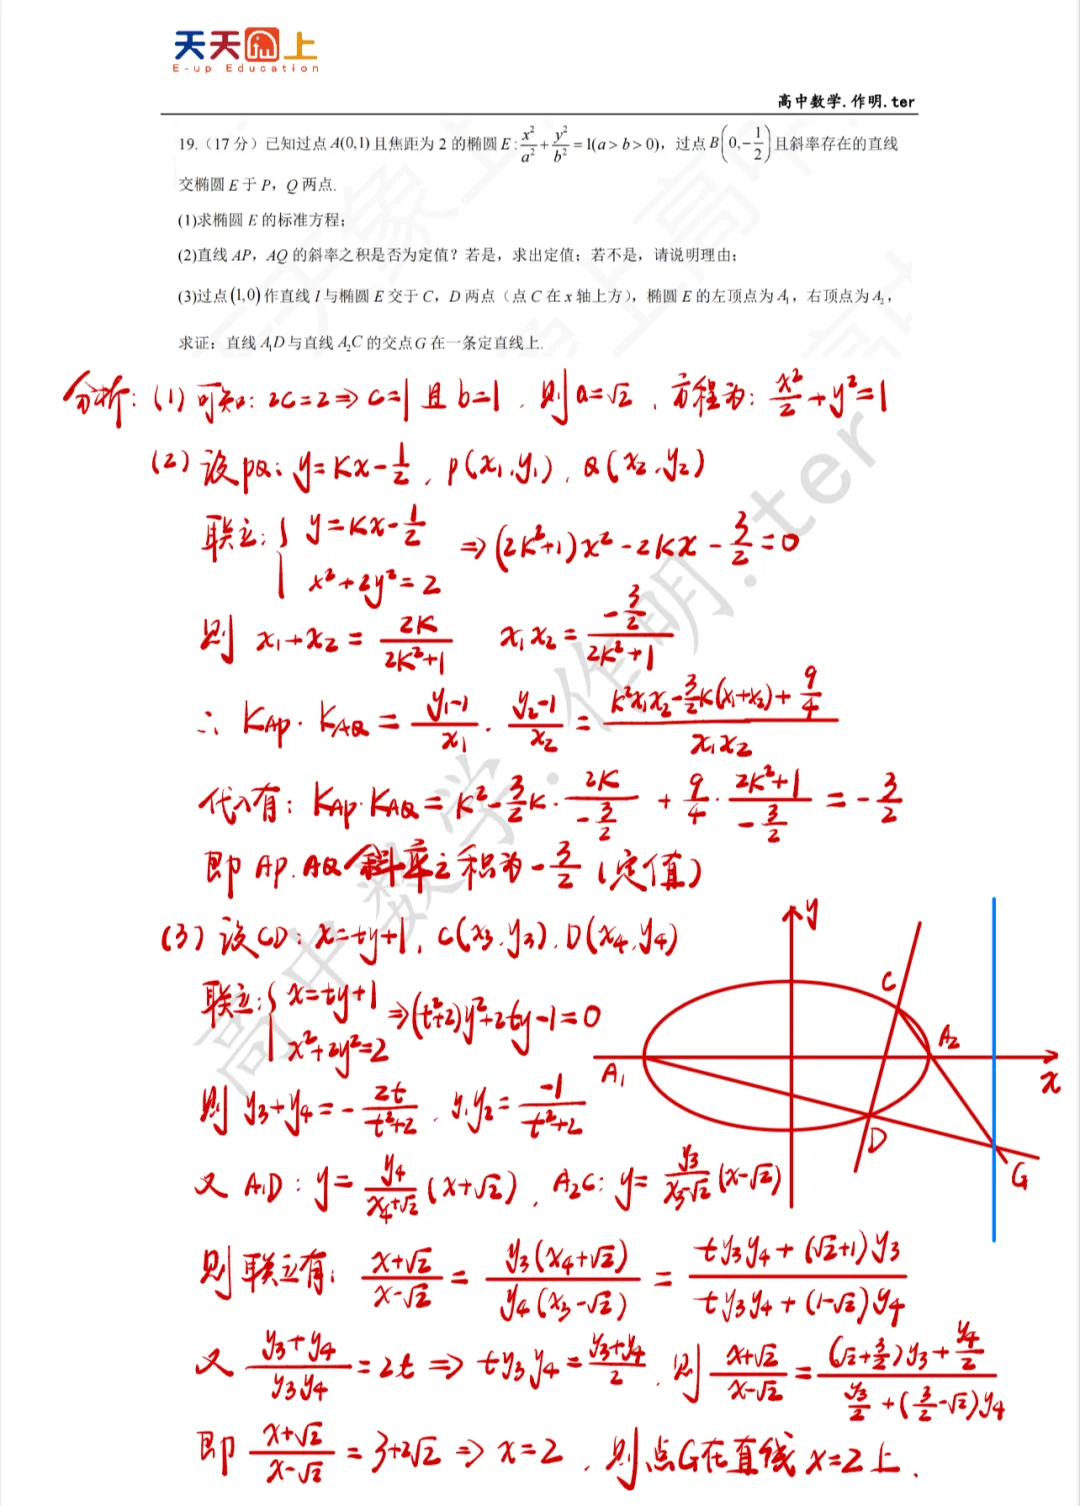 天天向上
E-up Education
高中数学.作明.ter
19.（17 分）已知过点 A(0,1) 且焦距为 2 的椭圆 E: x²/a² + y²/b² = 1(a > b > 0)，过点 B(0, -1/2) 且斜率存在的直线
交椭圆 E 于 P，Q 两点.
(1)求椭圆 E 的标准方程;
(2)直线 AP，AQ 的斜率之积是否为定值？若是，求出定值；若不是，请说明理由;
(3)过点 (1,0) 作直线 l 与椭圆 E 交于 C，D 两点（点 C 在 x 轴上方），椭圆 E 的左顶点为 A₁，右顶点为 A₂，
求证：直线 A₁D 与直线 A₂C 的交点 G 在一条定直线上.
分析: (1) 可知: 2c=2 ⇒ c=1 且 b=1 . 则 a=√2 . 方程为: x²/2 + y² = 1
(2) 设 PQ: y=kx-1/2 , P(x₁,y₁) , Q(x₂,y₂)
联立: { y=kx-1/2
x²+2y²=2 ⇒ (2k²+1)x² - 2kx - 3/2 = 0
则 x₁+x₂ = 2k/(2k²+1) x₁x₂ = (-3/2)/(2k²+1)
∴ kAP · kAQ = (y₁-1)/x₁ · (y₂-1)/x₂ = (k²x₁x₂ - 3/2 k(x₁+x₂) + 9/4)/(x₁x₂)
代入有: kAP·kAQ = k² - 3/2 k · 2k/(-3/2) + 9/4 · (2k²+1)/(-3/2) = -3/2
即 AP.AQ 斜率之积为 -3/2 (定值)
(3) 设 CD: x=ty+1, C(x₃,y₃), D(x₄,y₄)
联立: { x=ty+1
x²+2y²=2 ⇒ (t²+2)y²+2ty-1=0
则 y₃+y₄ = -2t/(t²+2) . y₁y₂ = -1/(t²+2)
又 A₁D : y = y₄/(x₄+√2) (x+√2) , A₂C: y = y₃/(x₃-√2) (x-√2)
则联立有: (x+√2)/(x-√2) = y₃(x₄+√2)/(y₄(x₃-√2)) = (ty₃y₄+(√2+1)y₃)/(ty₃y₄+(1-√2)y₄)
又 (y₃+y₄)/(y₃y₄) = 2t ⇒ ty₃y₄ = (y₃+y₄)/2 . 则 (x+√2)/(x-√2) = ((√2+3/2)y₃ + y₄/2)/(y₃/2 + (3/2-√2)y₄)
即 (x+√2)/(x-√2) = 3+2√2 ⇒ x=2 . 则点G在直线 x=2 上.
y
C
A₁
A₂
x
D
G
高中数学.作明.ter